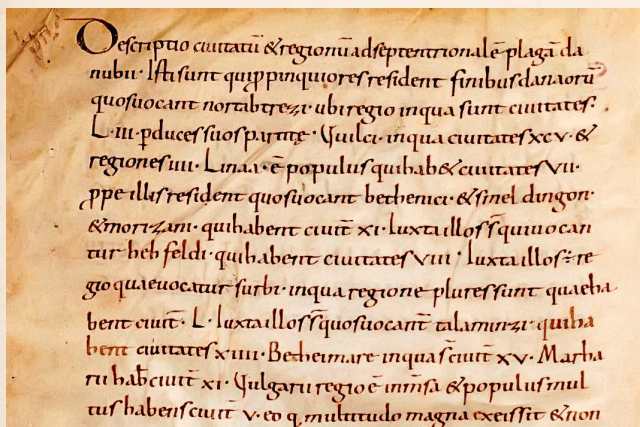 Descriptio ciuitatū & regionū ad septentrionalē plagā da
nubii · Isti sunt qui ꝓpinquiores resident finibus danaorū
quos uocant nortabtrezi · ubi regio in qua sunt ciuitates ·
L · iii · ꝑ duces suos partitę · Vuilci · in qua ciuitates xcv · &
regiones iiii · Linaa · ē populus qui hab& ciuitates vii ·
ꝓpe illis resident quos uocant bethenici · & smeldingon ·
& morizani · qui habent ciuit̄ xi · Iuxta illos s̄ qui uocan
tur hehfeldi · qui habent ciuitates viii · Iuxta illos · re
gio quae uocatur surbi · in qua regione plures sunt quae ha
bent ciuit̄ · L · Iuxta illos s̄ quos uocant talaminzi · qui ha
bent ciuitates xiiii · Beheimare in qua s̄ ciuit̄ xv · Marha
rii hab̄ ciuit̄ xi · Vulgarii regio ē inm̄sa & populus mul
tus habens ciuit̄ v · eo q̇ multitudo magna ex eis sit & non